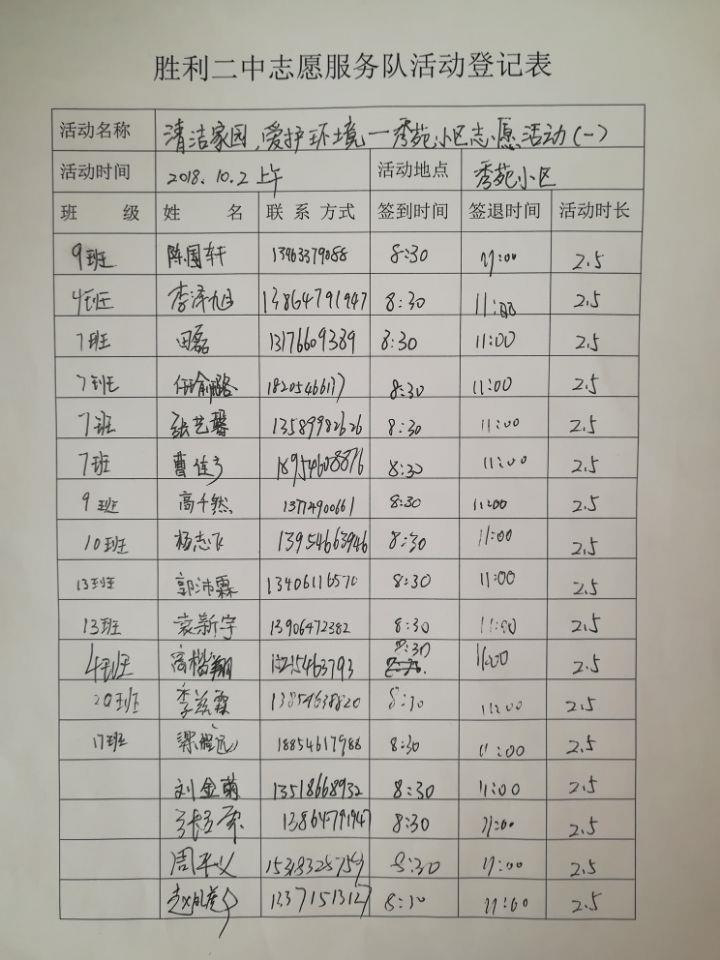 胜利二中志愿服务队活动登记表
活动名称 清洁家园，爱护环境—秀苑小区志愿活动(一)
活动时间 2018.10.2上午 活动地点 秀苑小区
班 级 姓 名 联 系 方式 签到时间 签退时间 活动时长
9班 陈国轩 13963379088 8:30 11:00 2.5
4班 李泽旭 13864791947 8:30 11:00 2.5
7班 田磊 13176609389 8:30 11:00 2.5
7班 8:30 11:00 2.5
7班 张艺馨 13589982626 8:30 11:00 2.5
7班 18954608876 8:30 11:00 2.5
9班 高千然 8:30 11:00 2.5
10班 杨志飞 13954663946 8:30 11:00 2.5
13班 郭沛霖 13406116570 8:30 11:00 2.5
13班 袁新宇 13906472382 8:30 11:00 2.5
4班 高楷翔 8:30 11:00 2.5
20班 李兹霖 13854638820 8:30 11:00 2.5
17班 18854617988 8:30 11:00 2.5
刘金菊 13518668932 8:30 11:00 2.5
13864791947 8:30 11:00 2.5
周平义 8:30 11:00 2.5
13371513127 8:30 11:00 2.5